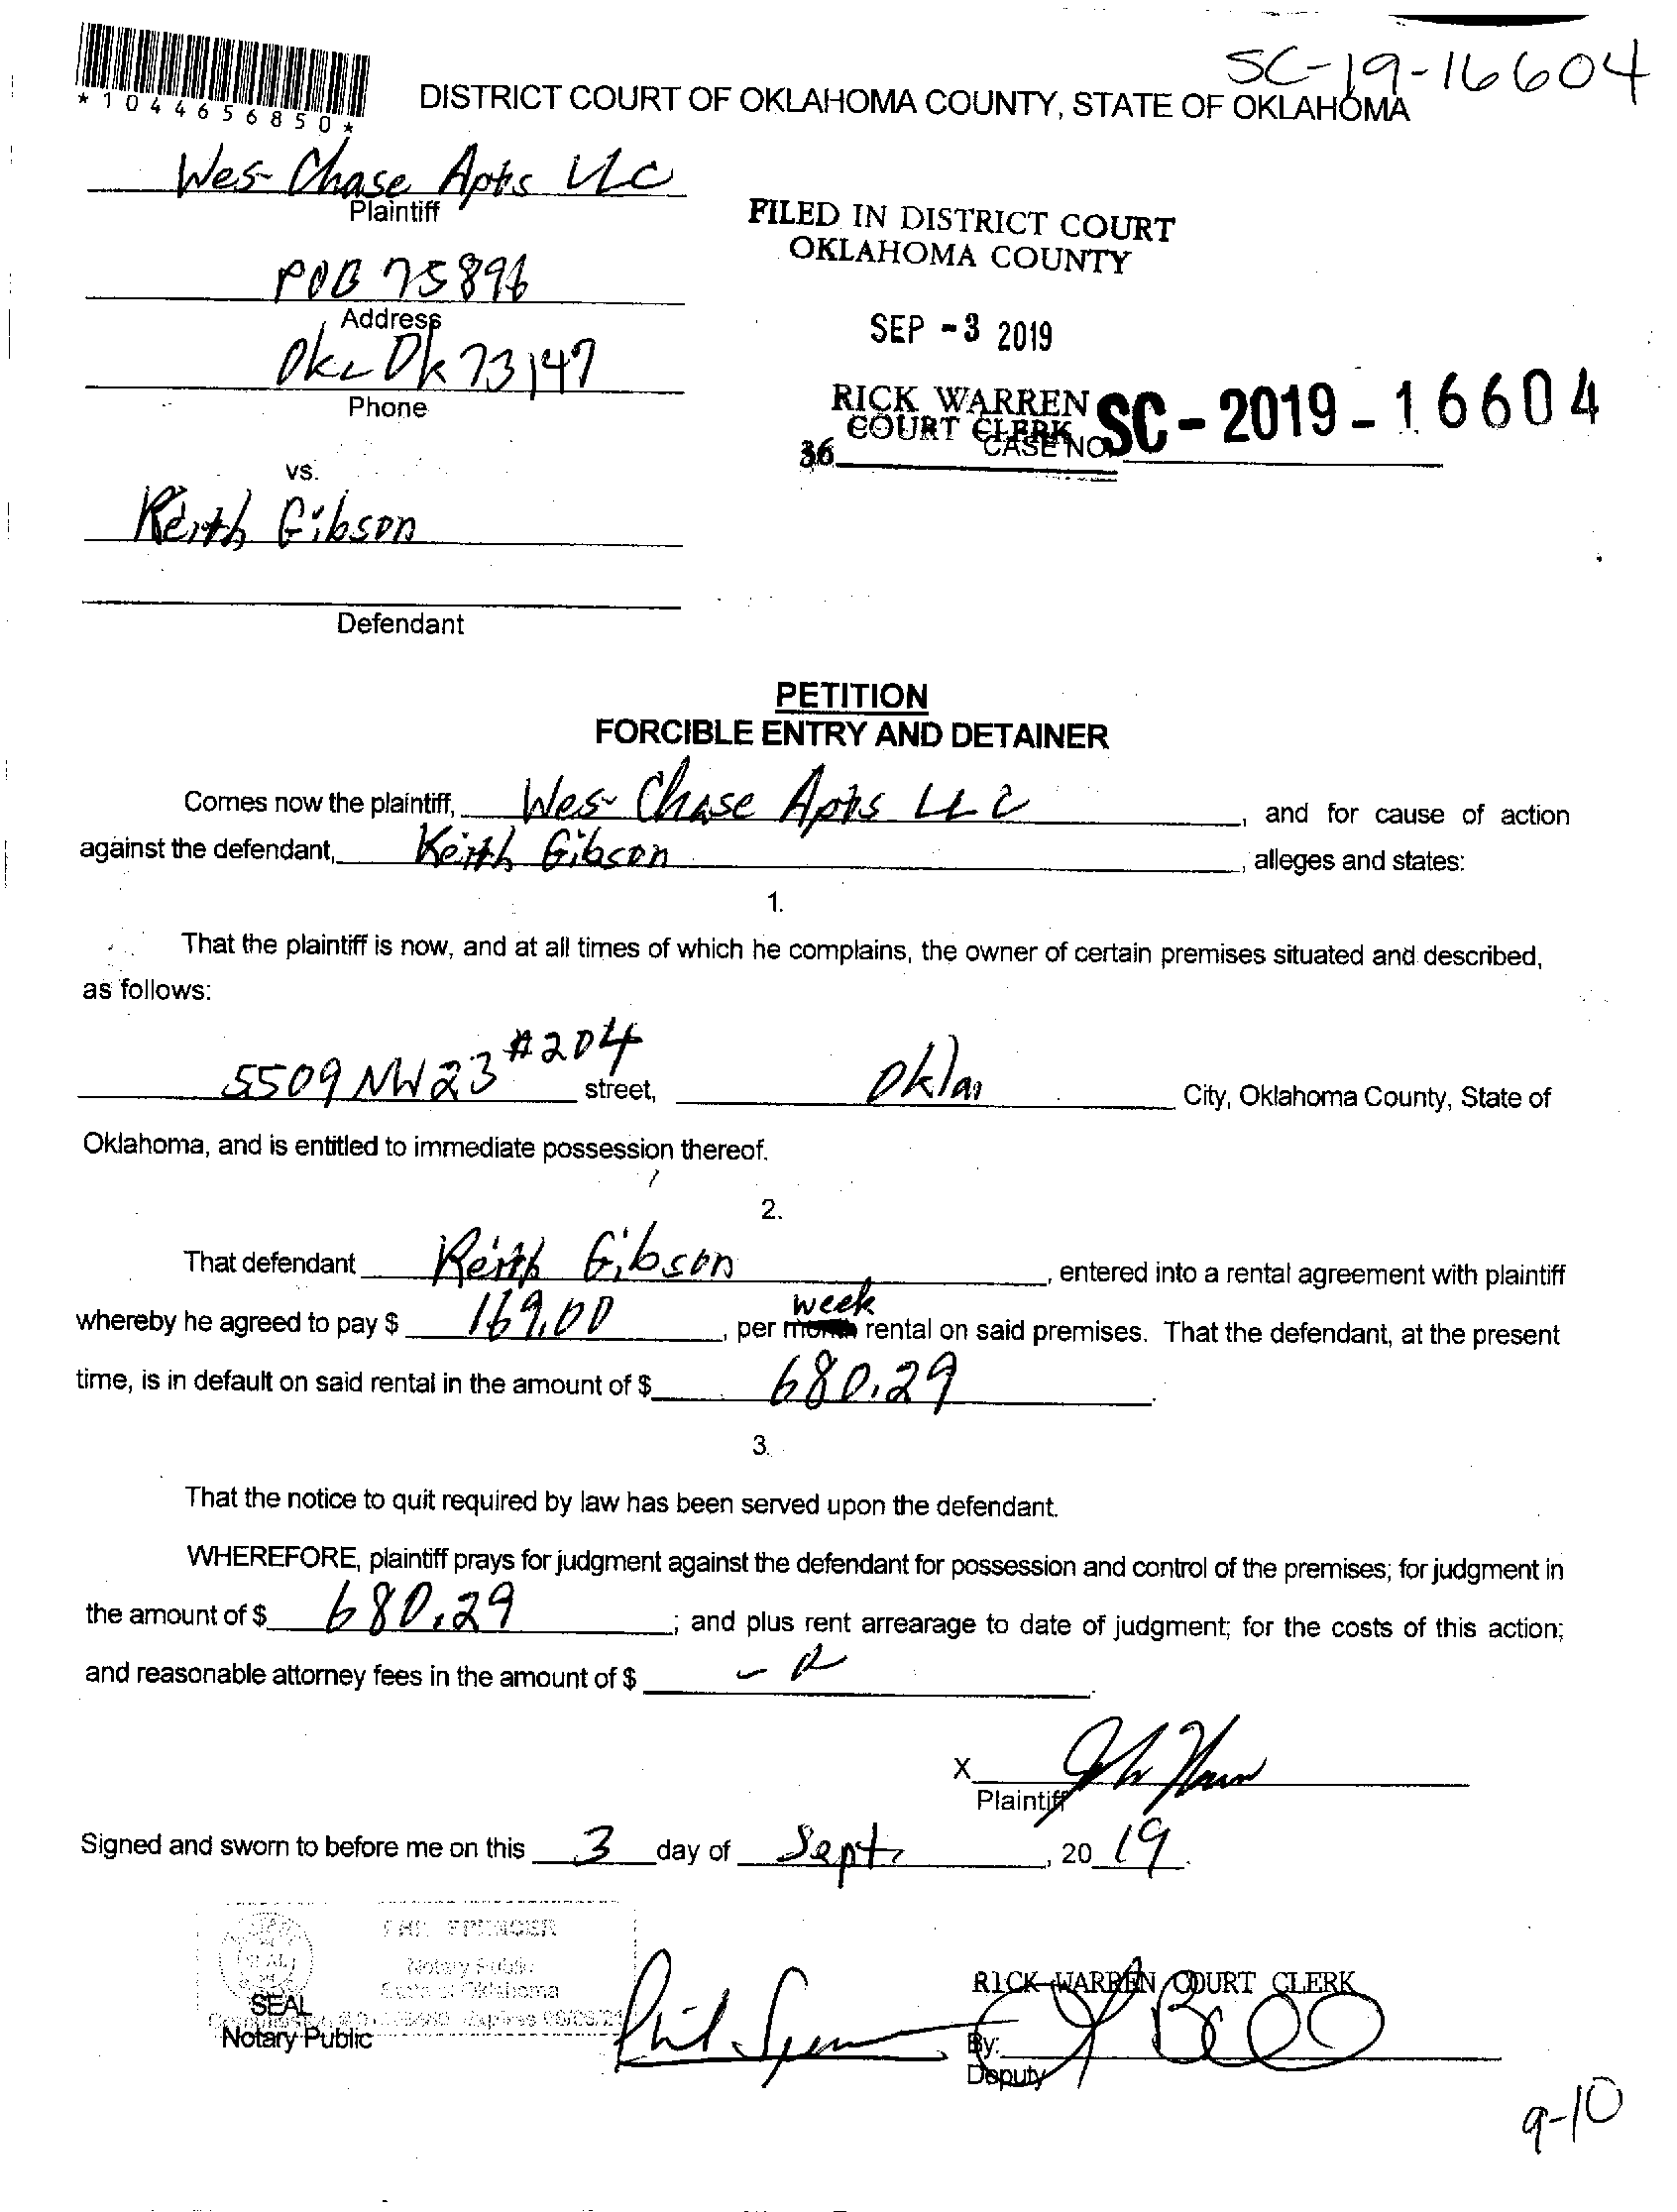 SC-19-16604
*1044656850*
DISTRICT COURT OF OKLAHOMA COUNTY, STATE OF OKLAHOMA
Wes-Chase Apts LLC
Plaintiff
FILED IN DISTRICT COURT
OKLAHOMA COUNTY
POB 75896
Address
SEP -3 2019
Okc Ok 73147
Phone
RICK WARREN
COURT CLERK
CASE NO. SC-2019-16604
36
vs.
Keith Gibson
Defendant
PETITION
FORCIBLE ENTRY AND DETAINER
Comes now the plaintiff, Wes-Chase Apts LLC, and for cause of action
against the defendant, Keith Gibson, alleges and states:
1.
That the plaintiff is now, and at all times of which he complains, the owner of certain premises situated and described,
as follows:
5509 NW 23 #204 street, Okla City, Oklahoma County, State of
Oklahoma, and is entitled to immediate possession thereof.
2.
That defendant Keith Gibson, entered into a rental agreement with plaintiff
week
whereby he agreed to pay $ 169.00, per month rental on said premises. That the defendant, at the present
time, is in default on said rental in the amount of $ 680.29.
3.
That the notice to quit required by law has been served upon the defendant.
WHEREFORE, plaintiff prays for judgment against the defendant for possession and control of the premises; for judgment in
the amount of $ 680.29; and plus rent arrearage to date of judgment; for the costs of this action;
and reasonable attorney fees in the amount of $
X
Plaintiff
Signed and sworn to before me on this 3 day of Sept, 2019.
Notary Public
State of Oklahoma
SEAL
Notary Public
Phil Spencer
RICK WARREN COURT CLERK
By:
Deputy
9-10